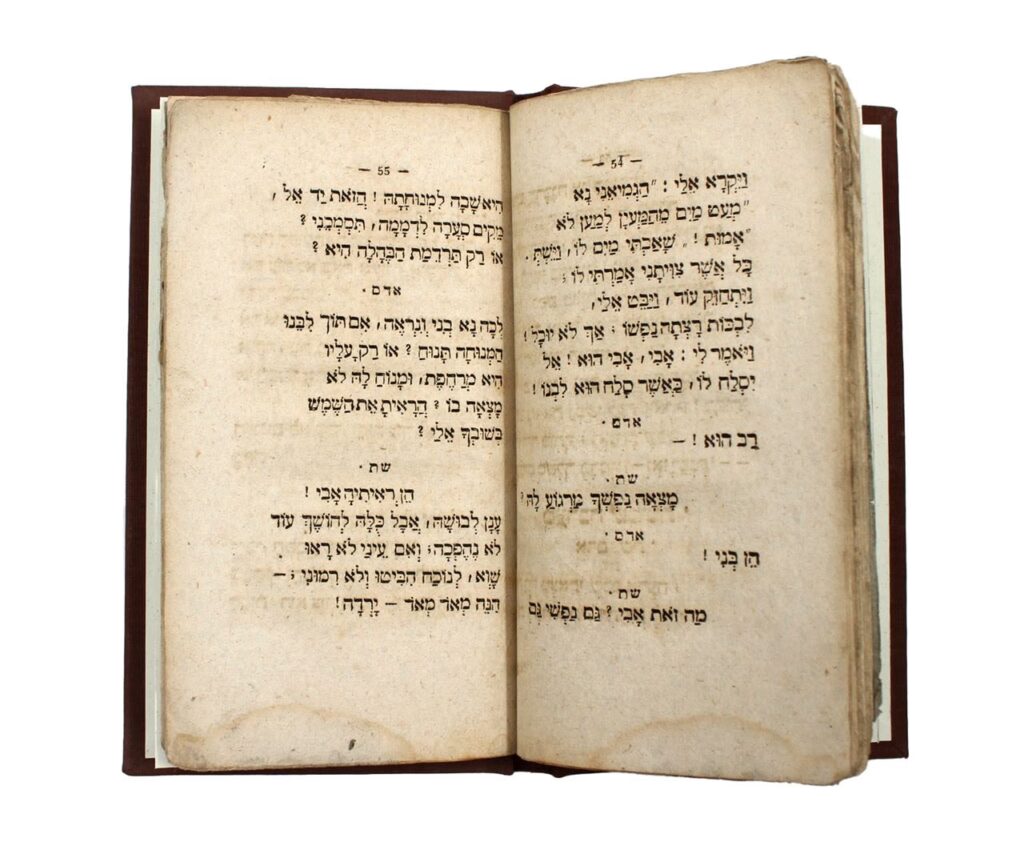 — 54 —
וַיִּקְרָא אֵלַי : ״הַגְמִיאֵנִי נָא
״מְעַט מַיִם מֵהַמַּעְיָן לְמַעַן לֹא
״אָמוּת ! ״ שָׁאַבְתִּי מַיִם לוֹ, וַיֵּשְׁתְּ .
כָּל אֲשֶׁר צִוִּיתָנִי אָמַרְתִּי לוֹ ;
וַיִּתְחַזֵּק עוֹד, וַיַּבֵּט אֵלַי,
לִבְכּוֹת רָצְתָה נַפְשׁוֹ ; אַךְ לֹא יוּכָל !
וַיֹּאמֶר לִי : אָבִי, אָבִי הוּא ! אֵל
יִסְלַח לוֹ, כַּאֲשֶׁר סָלַח הוּא לִבְנוֹ !
אדם ·
רַב הוּא ! —
שת ·
מָצְאָה נַפְשְׁךָ מַרְגּוֹעַ לָהּ ?
אדם ·
הֵן בְּנִי !
שת ·
מַה זֹּאת אָבִי ? גַּם נַפְשִׁי גַּם
— 55 —
הִיא שָׁבָה לִמְנוּחָתָהּ ! הֲזֹאת יַד אֵל ,
מֵקִים סְעָרָה לִדְמָמָה, תִּסְמְכֵנִי ?
אוֹ רַק תַּרְדֵּמַת הַבֶּהָלָה הִיא ?
אדם ·
לְכָה נָא בְנִי וְנִרְאֶה, אִם תּוֹךְ לִבֵּנוּ
הַמְּנוּחָה תָּנוּחַ ? אוֹ רַק עָלָיו
הִיא מְרַחֶפֶת, וּמָנוֹחַ לָהּ לֹא
מָצְאָה בוֹ ? הֲרָאִיתָ אֶת הַשֶּׁמֶשׁ
בְּשׁוּבְךָ אֵלַי ?
שת ·
הֵן רְאִיתִיהָ אָבִי !
עָנָן לְבוּשָׁהּ, אֲבָל כֻּלָּהּ לְחוֹשֶׁךְ עוֹד
לֹא נֶהְפְּכָה ; וְאִם עֵינַי לֹא רָאוּ
שָׁוְא, לְנוֹכַח הִבִּיטוּ וְלֹא רִמּוּנִי ; —
הִנֵּה מְאֹד מְאֹד — יָרְדָה !